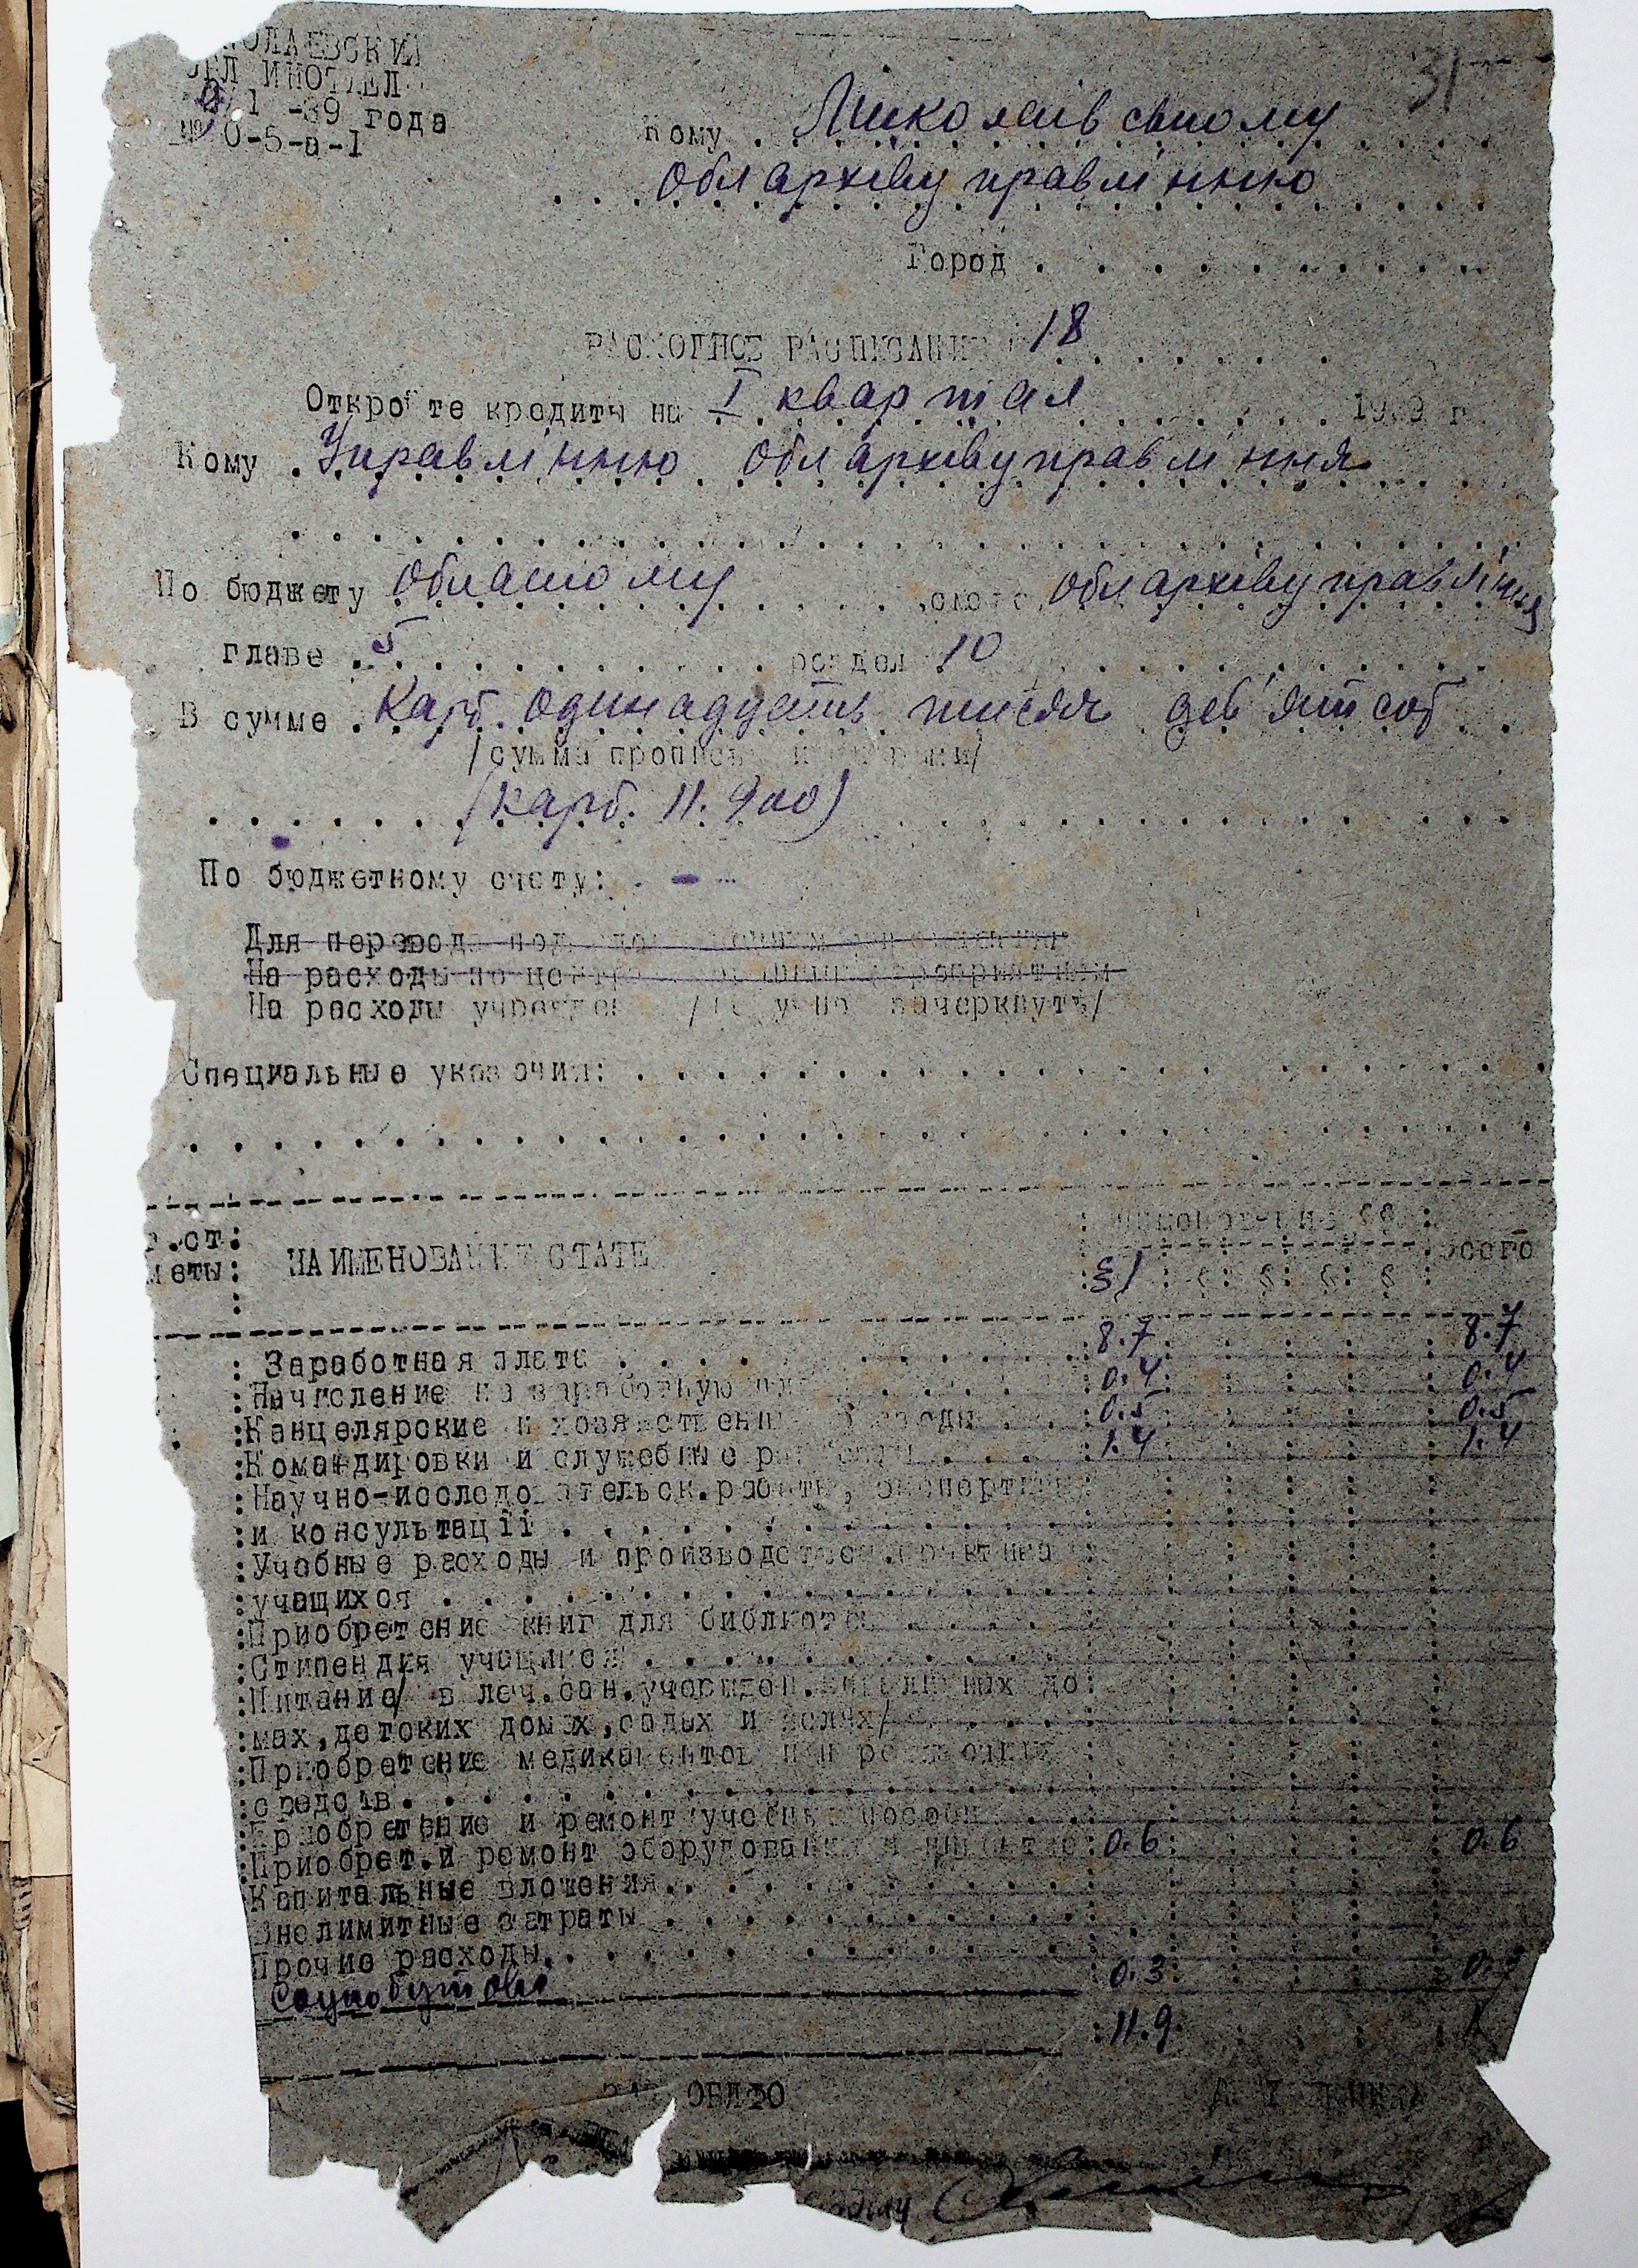 ОЛАЕВСКИ
ИНОТДЕЛ
1 -39 года
№ 0-5-а-1
31
Кому . Миколаівському
Облархівуправлінню
Город . . . . . . . . . .
РАСХОДНОЕ РАСПИСАНИЕ 18
Откройте кредиты на I квартал 1939 г
Кому . Управлінню Облархівуправління
По бюджету Обласному смете Облархівуправління
главе . 5 . . . . . . . раздел 10 . . . . .
В сумме . Карб. одинадцать тисяч дев'ятсот
/сумма прописью и цифрами/
(карб. 11.900)
По бюджетному счету: -
Для перевода
На расходы по центр
На расходы учрежден /не нужно зачеркнуть/
Специальные указания: . . . . . . . . . .
ст: НАИМЕНОВАНИЕ СТАТЕ всего
меты: §1 : § : § : § : §
Заработная плата . . . . . . 8.7 8.7
Начисление на заработную 0.4 0.4
Канцелярские и хозяйственн 0.5 0.5
Командировки и служебные 1.4 1.4
Научно-исследовательск.работы, экспертизы
и консультації . . . . . . . .
Учебные расходы и производствен.практика
учащихся . . . . . . . . . .
Приобретение книг для библиотек . . . .
Стипендия учащимся . . . . . . . .
Питание/ в леч.сан.учережден. до
мах,детских домах,садах и яслях/ . . . .
Приобретение медикаментов и перевязочных
средств. . . . . . . . . . .
Приобретение и ремонт учебных пособий . .
Приобрет.и ремонт оборудования и инвентаря 0.6 0.6
Капитальные вложения. . . . . . . .
Внелимитные затраты . . . . . . . .
Прочие расходы. . . . . . . .
Соцкобутові 0.3 0.
11.9
ОБЛФО